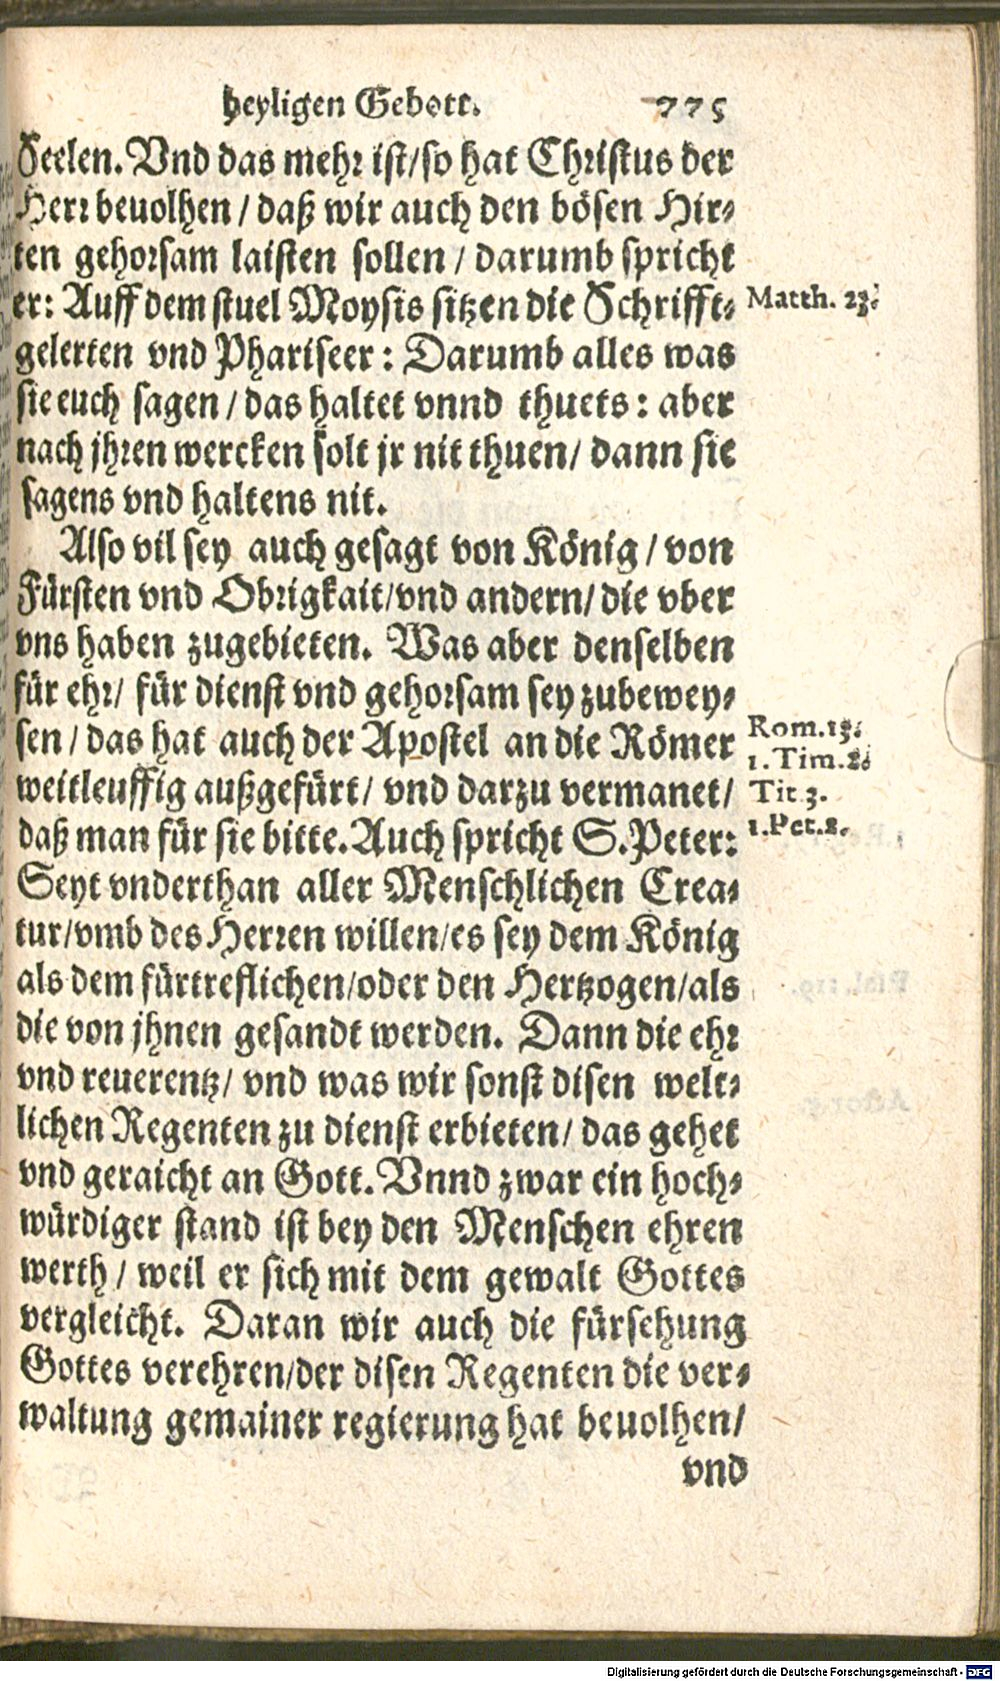 heyligen Gebott. 775
Seelen. Vnd das mehr ist/so hat Christus der
Herr beuolhen / daß wir auch den bösen Hir-
ten gehorsam laisten sollen / darumb spricht
er: Auff dem stuel Moysis sitzen die Schrifft- Matth. 23.
gelerten vnd Phariseer: Darumb alles was
sie euch sagen / das haltet vnnd thuets: aber
nach jhren wercken solt jr nit thuen/ dann sie
sagens vnd haltens nit.
Also vil sey auch gesagt von König / von
Fürsten vnd Obrigkait/vnd andern/ die vber
vns haben zugebieten. Was aber denselben
für ehr/ für dienst vnd gehorsam sey zubewey-
sen / das hat auch der Apostel an die Römer Rom.13.
weitleuffig außgefürt/ vnd darzu vermanet/ 1. Tim.2.
daß man für sie bitte. Auch spricht S. Peter: Tit 3.
Seyt vnderthan aller Menschlichen Crea- 1.Pet.2.
tur/vmb des Herren willen/es sey dem König
als dem fürtreflichen/oder den Hertzogen/als
die von jhnen gesandt werden. Dann die ehr
vnd reuerentz/ vnd was wir sonst disen welt-
lichen Regenten zu dienst erbieten/ das gehet
vnd geraicht an Gott. Vnnd zwar ein hoch-
würdiger stand ist bey den Menschen ehren
werth / weil er sich mit dem gewalt Gottes
vergleicht. Daran wir auch die fürsehung
Gottes verehren/der disen Regenten die ver-
waltung gemainer regierung hat beuolhen/
vnd
Digitalisierung gefördert durch die Deutsche Forschungsgemeinschaft - DFG